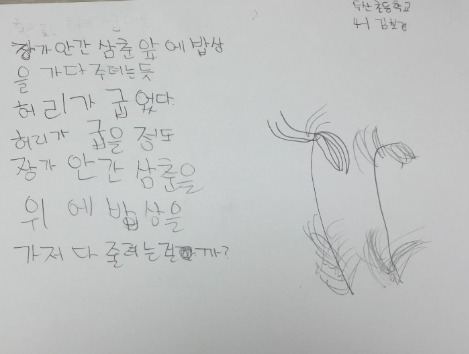 두산초등학교
4-1 김
장가 안간 삼춘 앞 에 밥상
을 가다 주려는듯
허리가 굽었다.
허리가 굽을 정도
장가 안간 삼춘을
위 에 밥상을
가저 다 줄려는 까?